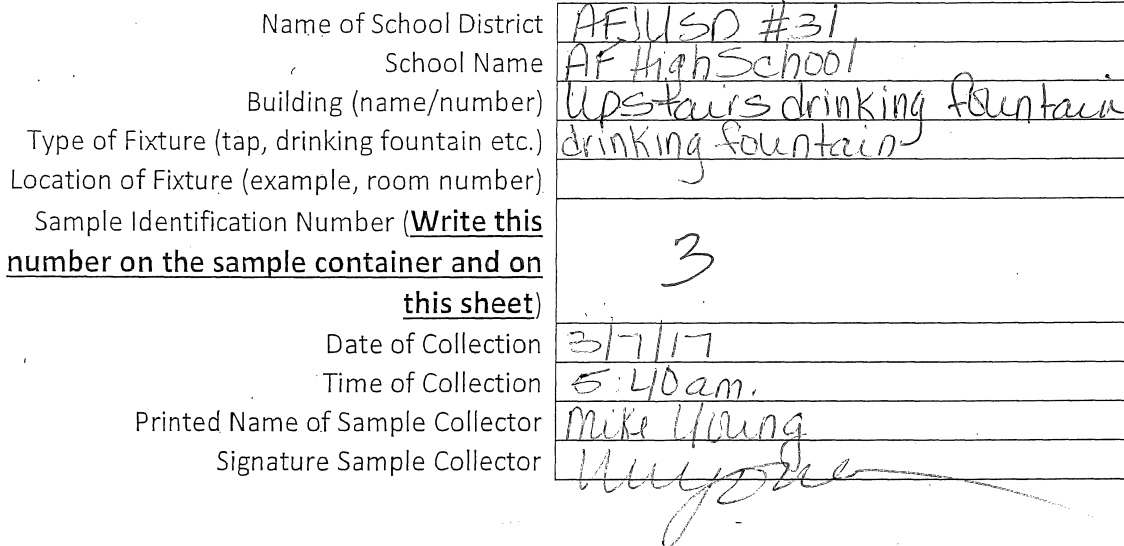 Name of School District AFJUSD #31
School Name AF High School
Building (name/number) Upstairs drinking fountain
Type of Fixture (tap, drinking fountain etc.) drinking fountain
Location of Fixture (example, room number)
Sample Identification Number (Write this
number on the sample container and on 3
this sheet)
Date of Collection 3/7/17
Time of Collection 5:40 am.
Printed Name of Sample Collector Mike Young
Signature Sample Collector